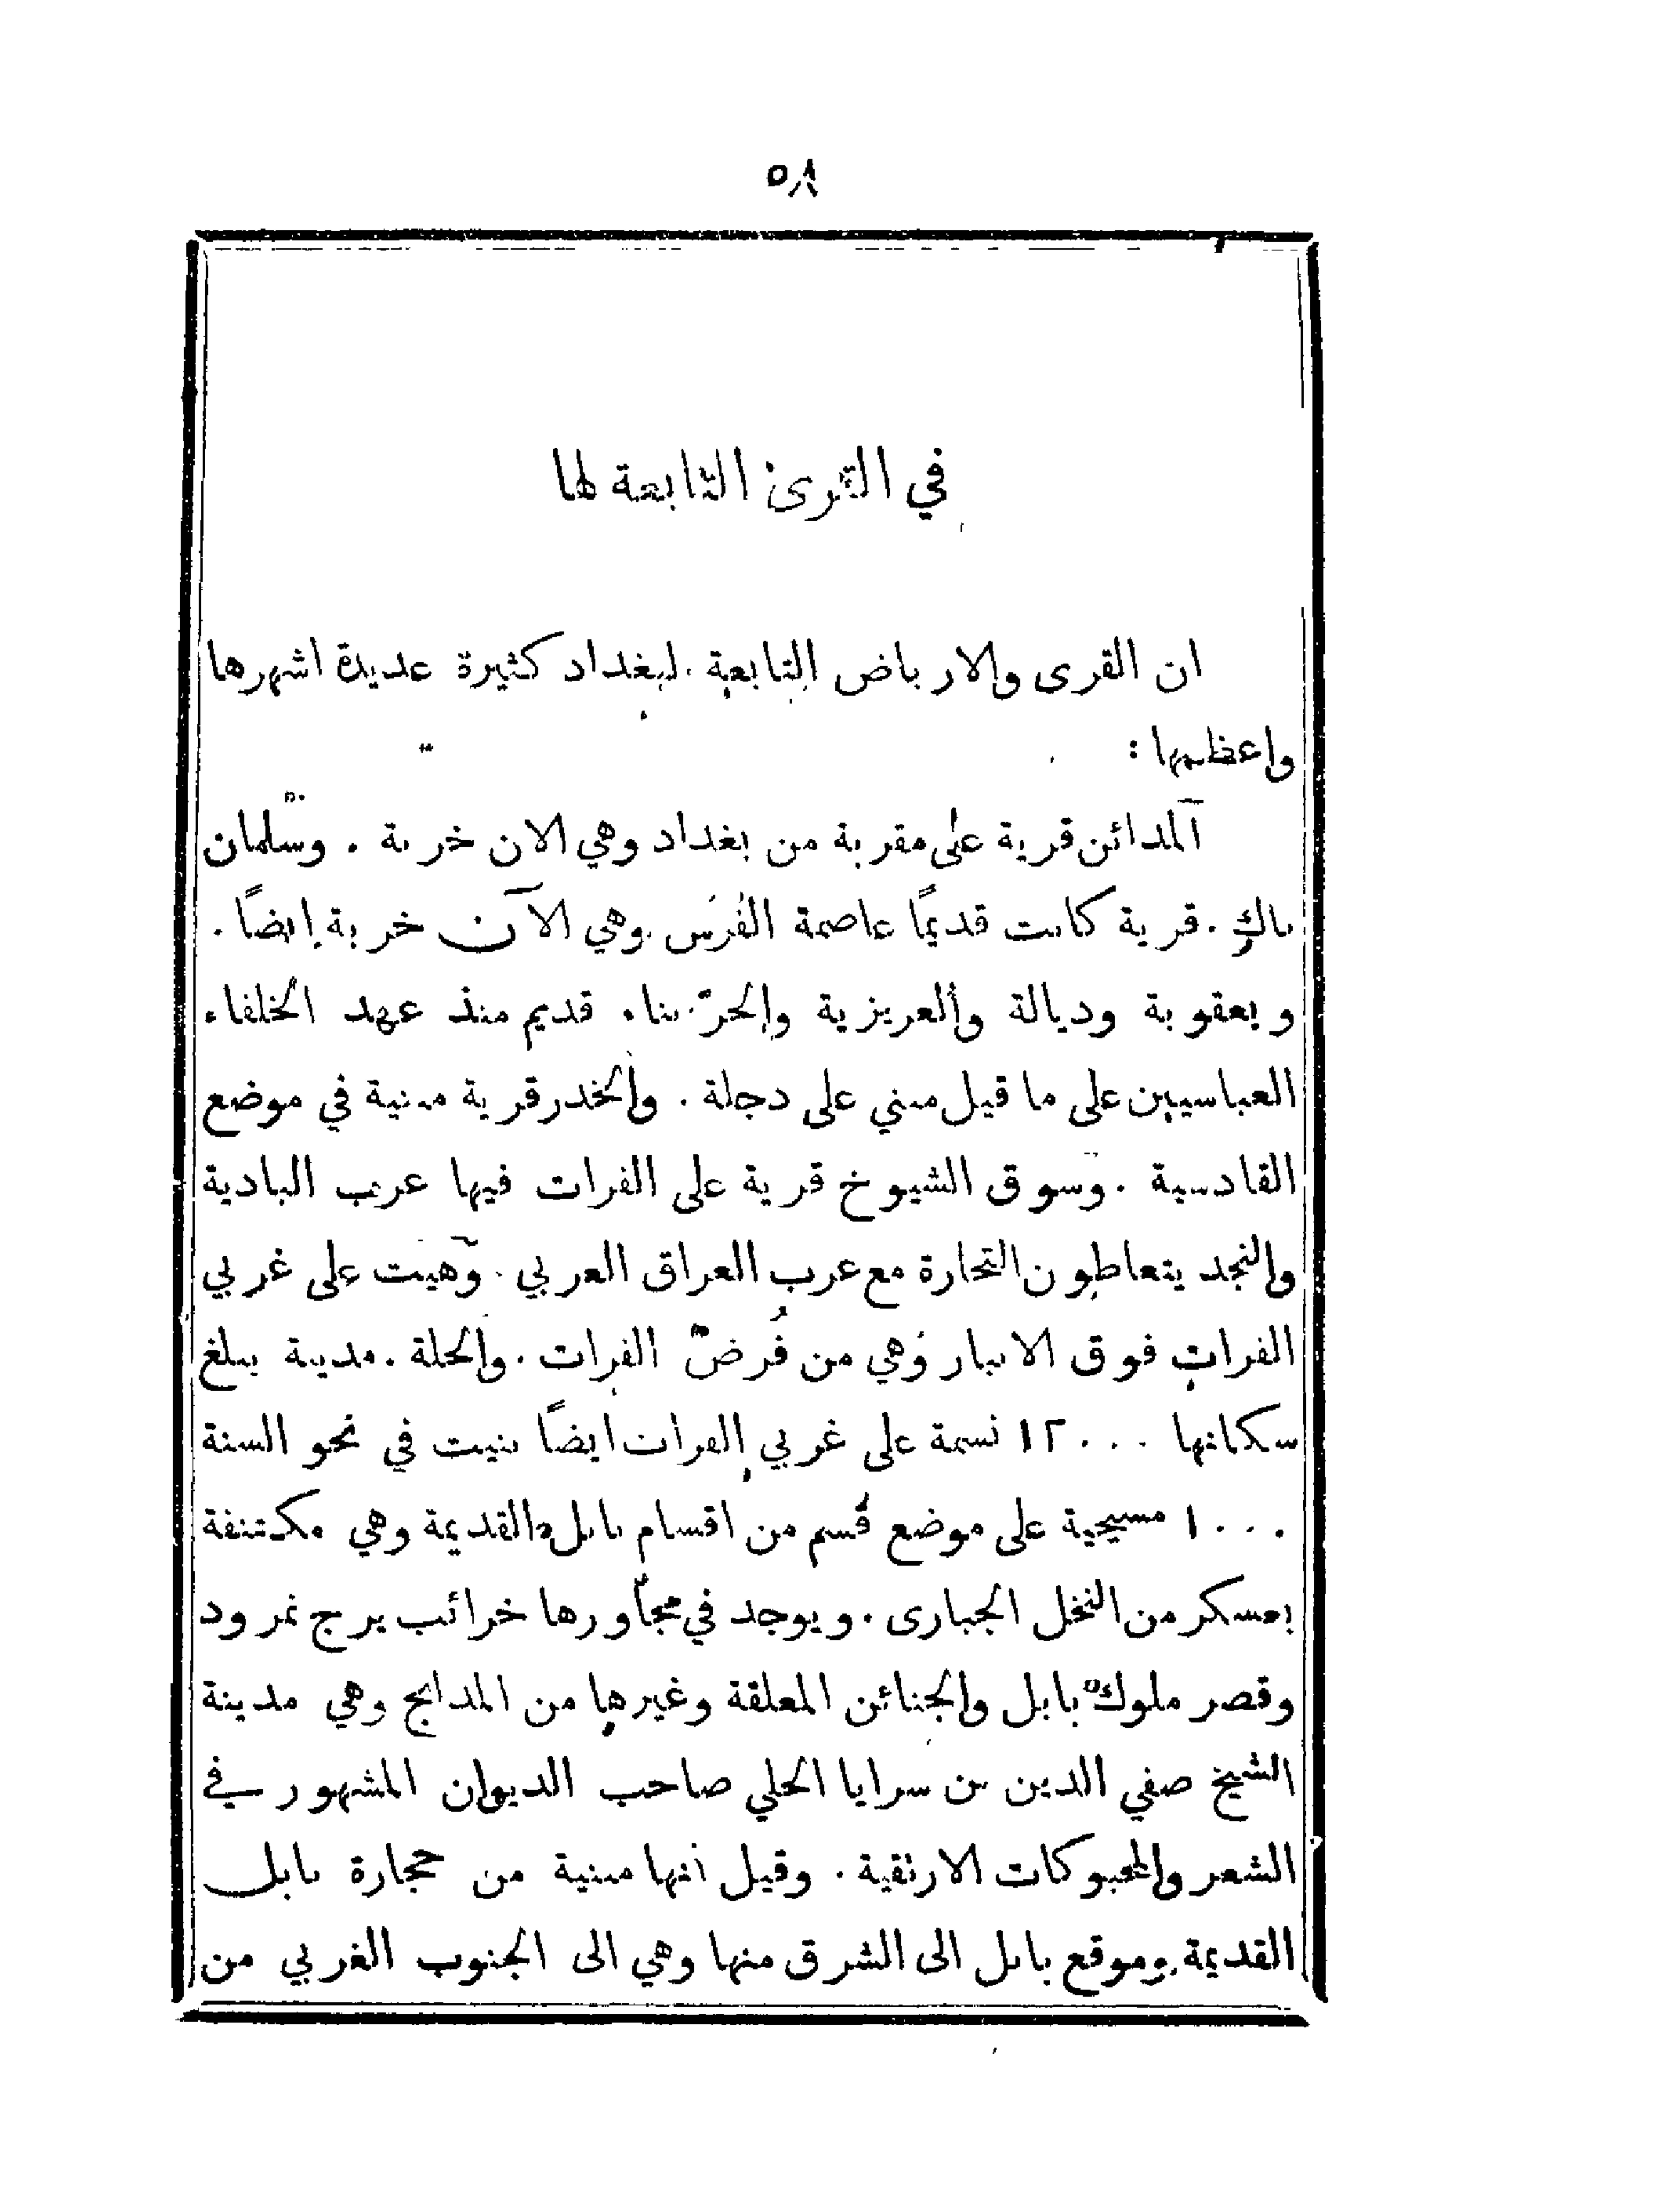 ٥٨
في القرى التابعة لها
ان القرى والارباض التابعة لبغداد كثيرة عديدة اشهرها
واعظمها :
المدائن قرية على مقربة من بغداد وهي الان خربة . وسلمان
باك . قرية كانت قديمًا عاصمة الفُرس وهي الآن خربة ايضًا .
وبعقوبة وديالة والعزيزية والحرّ بناء قديم منذ عهد الخلفاء
العباسيين على ما قيل مبني على دجلة . والخدر قرية مبنية في موضع
القادسية . وسوق الشيوخ قرية على الفرات فيها عرب البادية
والنجد يتعاطون التجارة مع عرب العراق العربي . وهيت على غربي
الفرات فوق الانبار وهي من فُرض الفرات . والحلة . مدينة يبلغ
سكانها ١٢٠٠٠ نسمة على غربي الفرات ايضًا بنيت في نحو السنة
١٠٠٠ مسيحية على موضع قسم من اقسام بابل القديمة وهي مكتنفة
بعسكر من النخل الجبارى . ويوجد في مجاورها خرائب برج نمرود
وقصر ملوك بابل والجنائن المعلقة وغيرها من المدابح وهي مدينة
الشيخ صفي الدين بن سرايا الحلي صاحب الديوان المشهور في
الشعر والمحبوكات الارتقية . وقيل انها مبنية من حجارة بابل
القديمة وموقع بابل الى الشرق منها وهي الى الجنوب الغربي من